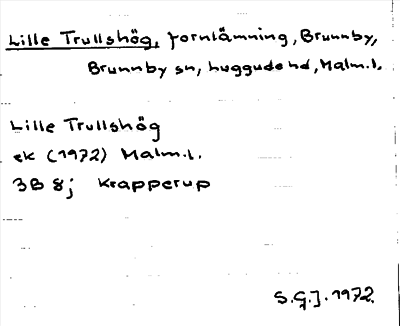 Lille Trullshög, fornlämning, Brunnby,
Brunnby sn, Luggude hd, Malm.l.
Lille Trullshög
ek (1972) Malm.l.
3B 8j Krapperup
S.G.J. 1972.